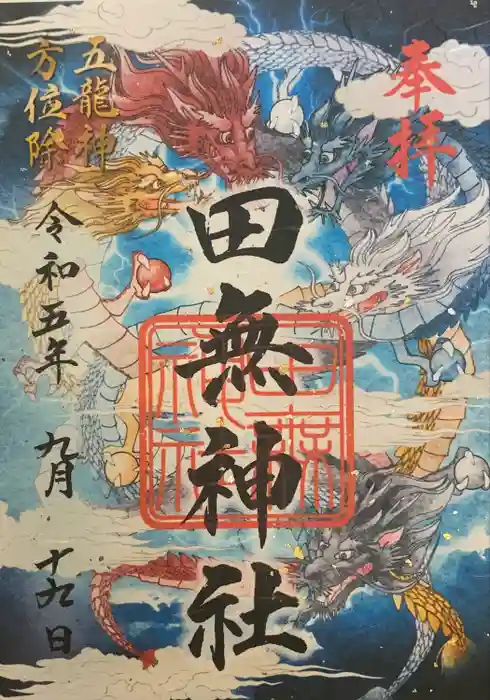 奉拝
田無神社
田無神社
五龍神
方位除
令和五年 九月 十九日